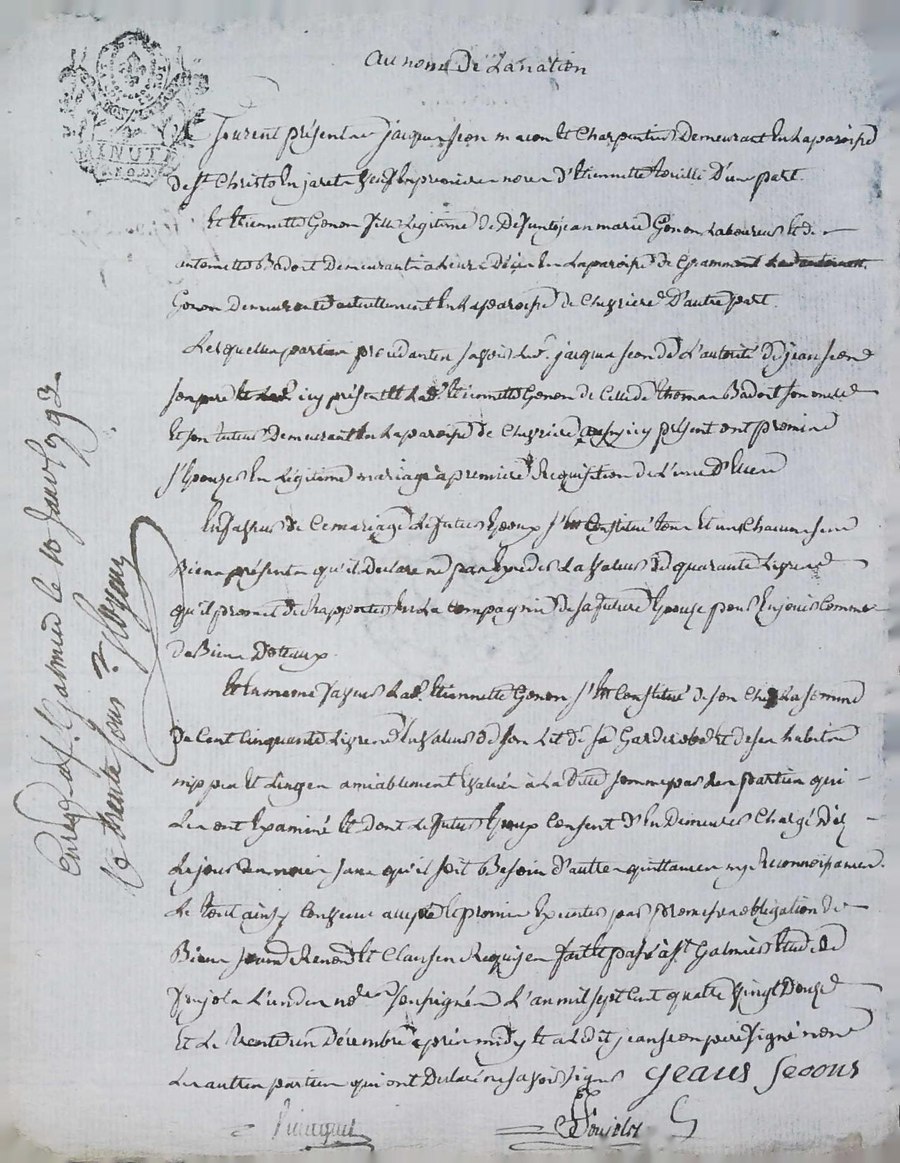 MINUTE
au nom de la nation
furent présents jacques seon macon et Charpentier Demeurant En la paroisse
de St Christo En jaret veuf En premieres noces d'Etiennette
Et Etiennette Gonon fille Legitime de Défunt jean marie Gonon Laboureur Et de
antoinette Badoit Demeurants a Leurs Décès En La paroisse de Grammont
Gonon demeurante actuellement En la paroisse de Chevriere D'autre part
Lesquelles parties procedantes sçavoir Led. jacques seon de L'autorité de jean seon
son pere icy présent Et Lad. Etiennette Gonon de Celle de thomas Badoit son oncle
Et son tuteur Demeurant En La paroisse de Chevriere aussy icy présent ont promis de
s'Epouser En Légitime mariage a premiere Requisition de L'une D'Elles
En faveur de Ce mariage Le futur Epoux s'Est Constitué tous Et uns Chacuns ses
Biens présents qu'il Declare ne pas Exceder La valeur de quarante Livres
qu'il promet de Rapporter En La Compagnie de sa future Epouse pour En jouir Comme
de Biens Dotaux.
Et En meme faveur Lad. Etiennette Gonon s'Est Constitué de son Chef La somme
De Cent Cinquante Livres En valeur de son Lit de sa Garderobe Et de ses habits
nippes et Linges amiablement Evalués à La Ditte somme par Les parties qui
Les ont Examiné Et dont Le futur Epoux Consent D'En Demeurer Chargé Dès
Le jour des noces sans qu'il soit Besoin d'autres quittances ny Reconnoissances.
Le tout ainsy Convenu accepté Et promis Executer par promesses obligation de
Biens soumis Renonc. Et Clauses Requises fait Et passé à St Galmier Etude de
Poujola L'un des nores soussignés L'an mil sept Cent quatre vingt Douze
Et Le trente un Décembre après midy Et a Ledit jean seon pere signé non
Les autres parties qui ont Declaré ne sçavoir signer jeans seoons
Poujolat
Enreg. a St Galmier le 10 Janv. 1793.